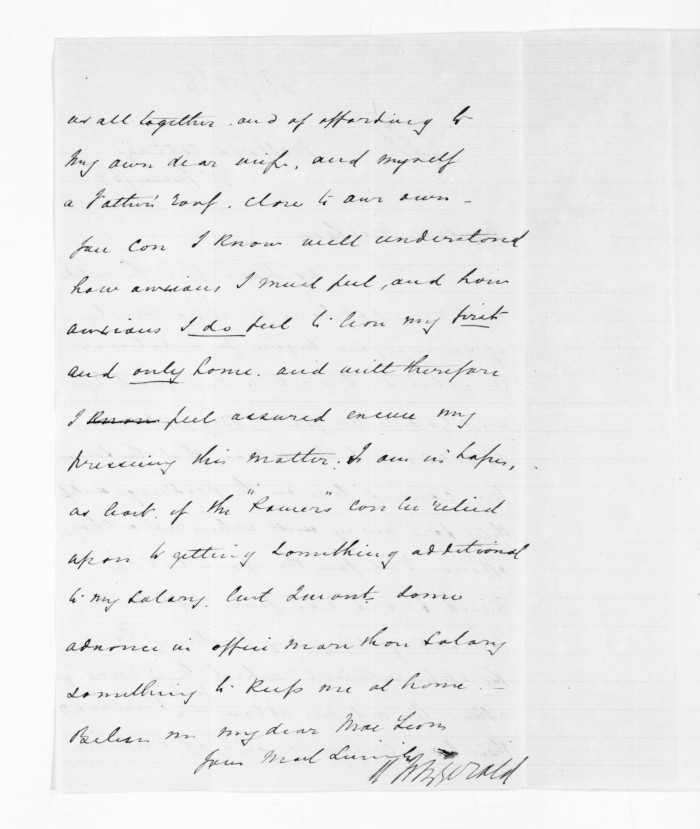 us all together. and of affording to
my own dear wife, and myself
a Father's roof. close to our own -
You can I know well understood
how anxious I must feel, and how
anxious I do feel to my first
and only home. and will therefore
I know feel assured excuse my
pressing this matter. I am in hopes,
as least. if the "Powers" can be relied
upon to getting something additional
to my salary. but I want some
advance in office more than salary
something to keep me at home. -
Believe me my dear Mac Lean
Yours Most Sincerely
Fitzgerald